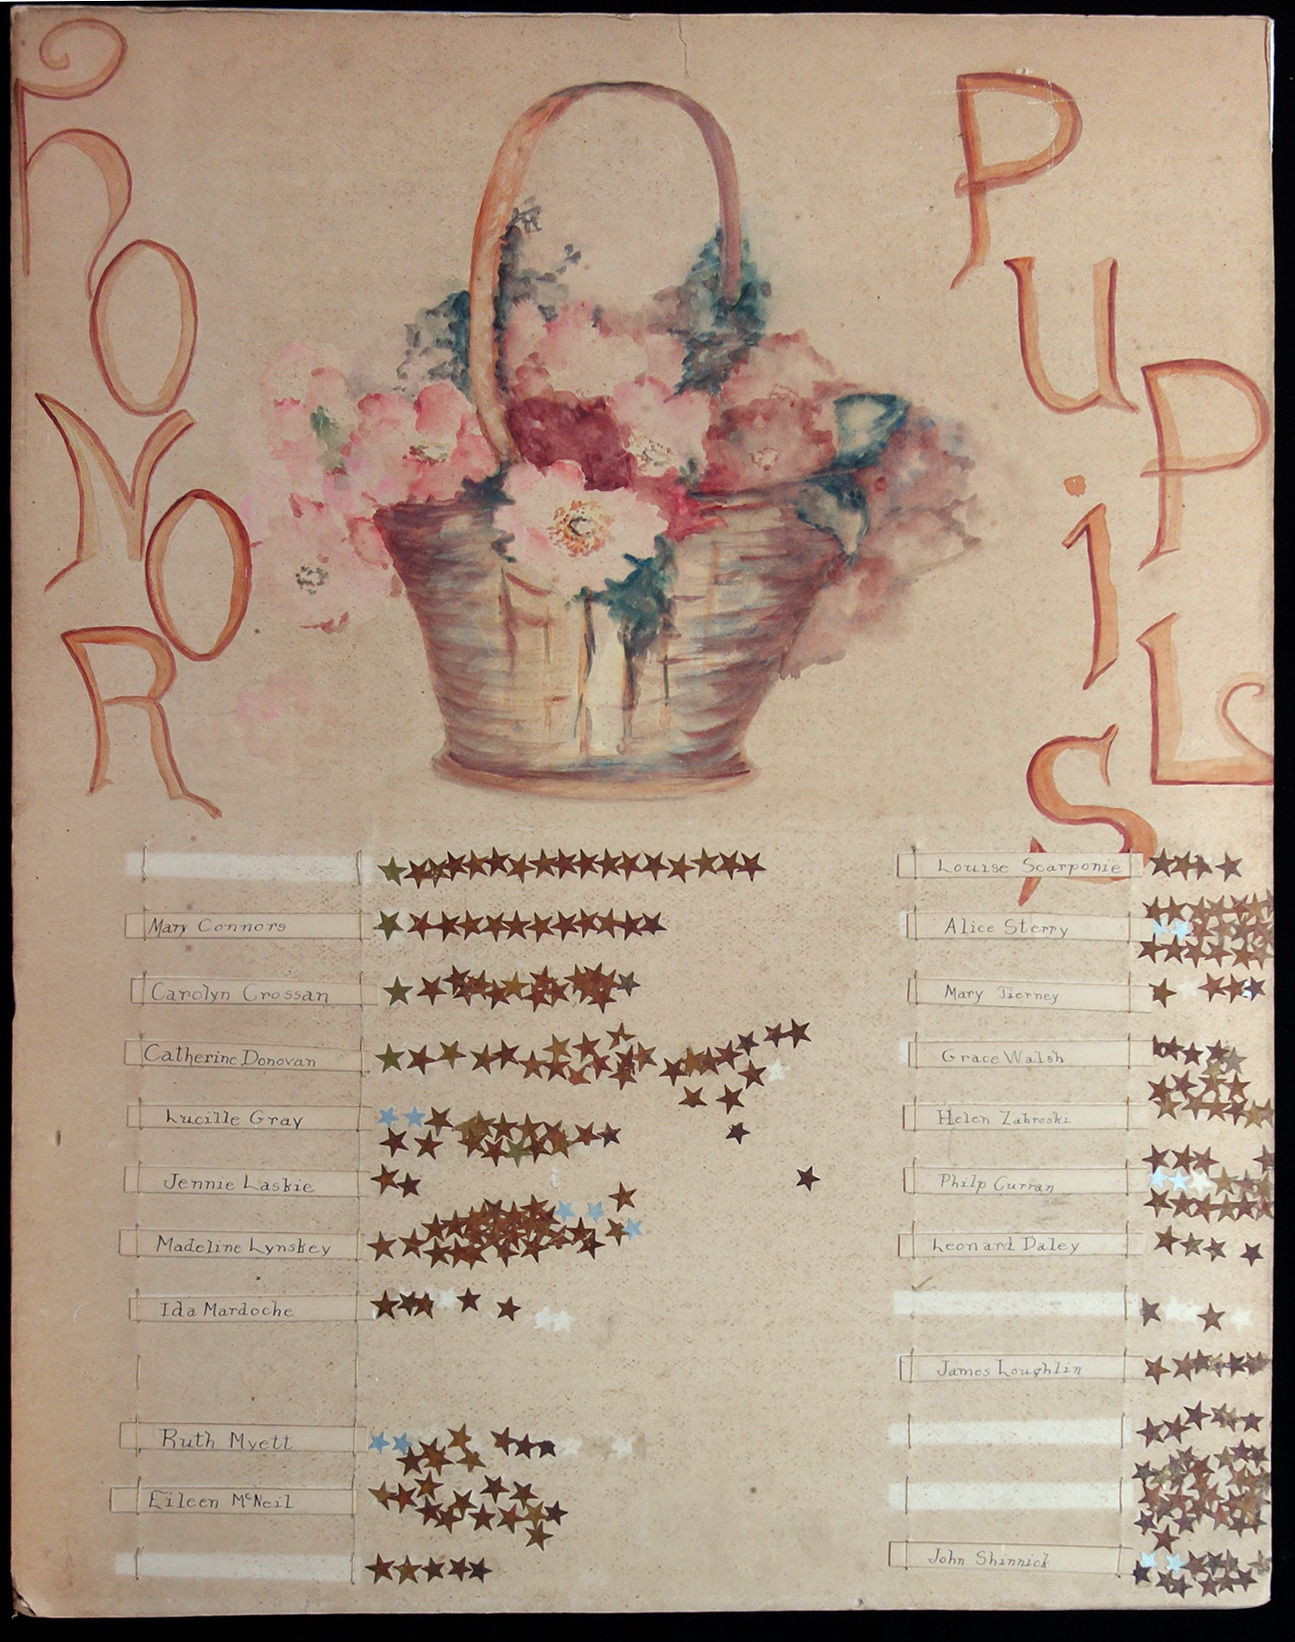 HONOR
PUPiLS
Mary Connors
Carolyn Crossan
Catherine Donovan
Lucille Gray
Jennie Laskie
Madeline Lynskey
Ida Mardoche
Ruth Myett
Eileen McNeil
Louise Scarponie
Alice Sterry
Mary Tierney
Grace Walsh
Helen Zabroski
Philp Curran
Leonard Daley
James Loughlin
John Shinnick